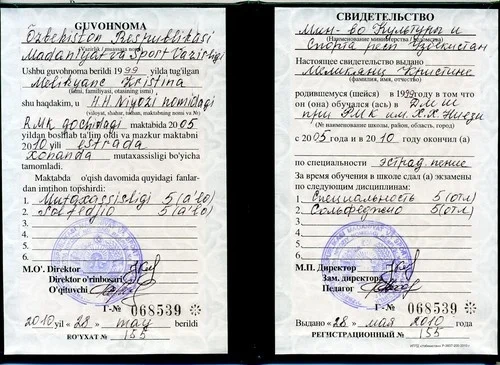 GUVOHNOMA
Özbekiston Respublikasi
(Vazirlik / muassasa nomi)
Madaniyat va Sport Vazirligi
Ushbu guvohnoma berildi 1999 yilda tug'ilgan
Melikyanc Kristina
(ismi, familiyasi, otasining ismi)
shu haqdakim, u H.H. Niyozi nomidagi
(viloyat, shahar, tuman, maktabning nomi va №)
RMK qochidagi maktabida 2005
yildan boshlab ta'lim oldi va mazkur maktabni
2010 yili estrada
xonanda mutaxassisligi bo'yicha
tamomladi.
Maktabda o'qish davomida quyidagi fanlar-
dan imtihon topshirdi:
1. Mutaxassisligi 5 (a'lo)
2. Solfedjio 5 (a'lo)
3.
4.
5.
6.
M.O'. Direktor
Direktor o'rinbosari
O'qituvchi
Г-№ 068539
2010 yil «28» may berildi
RO'YXAT № 155
СВИДЕТЕЛЬСТВО
Мин-во Культуры и
(Наименование министерства / ведомства)
Спорта респ Узбекистан
Настоящее свидетельство выдано
Меликянц Кристине
(фамилия, имя, отчество)
родившемуся (шейся) в 1999 году в том что
он (она) обучался (ась) в ДМШ
при РМК им. Х.Х. Ниези
(№ наименование школы, район, область, город)
с 2005 года и в 2010 окончил (а)
по специальности эстрад. пение
За время обучения в школе сдал (а) экзамены
по следующим дисциплинам:
1. Специальность 5 (отл)
2. Сольфеджио 5 (отл)
3.
4.
5.
6.
М.П. Директор
Зам. директора
Педагог
Г-№ 068539
Выдано «28» мая 2010 года
РЕГИСТРАЦИОННЫЙ № 155